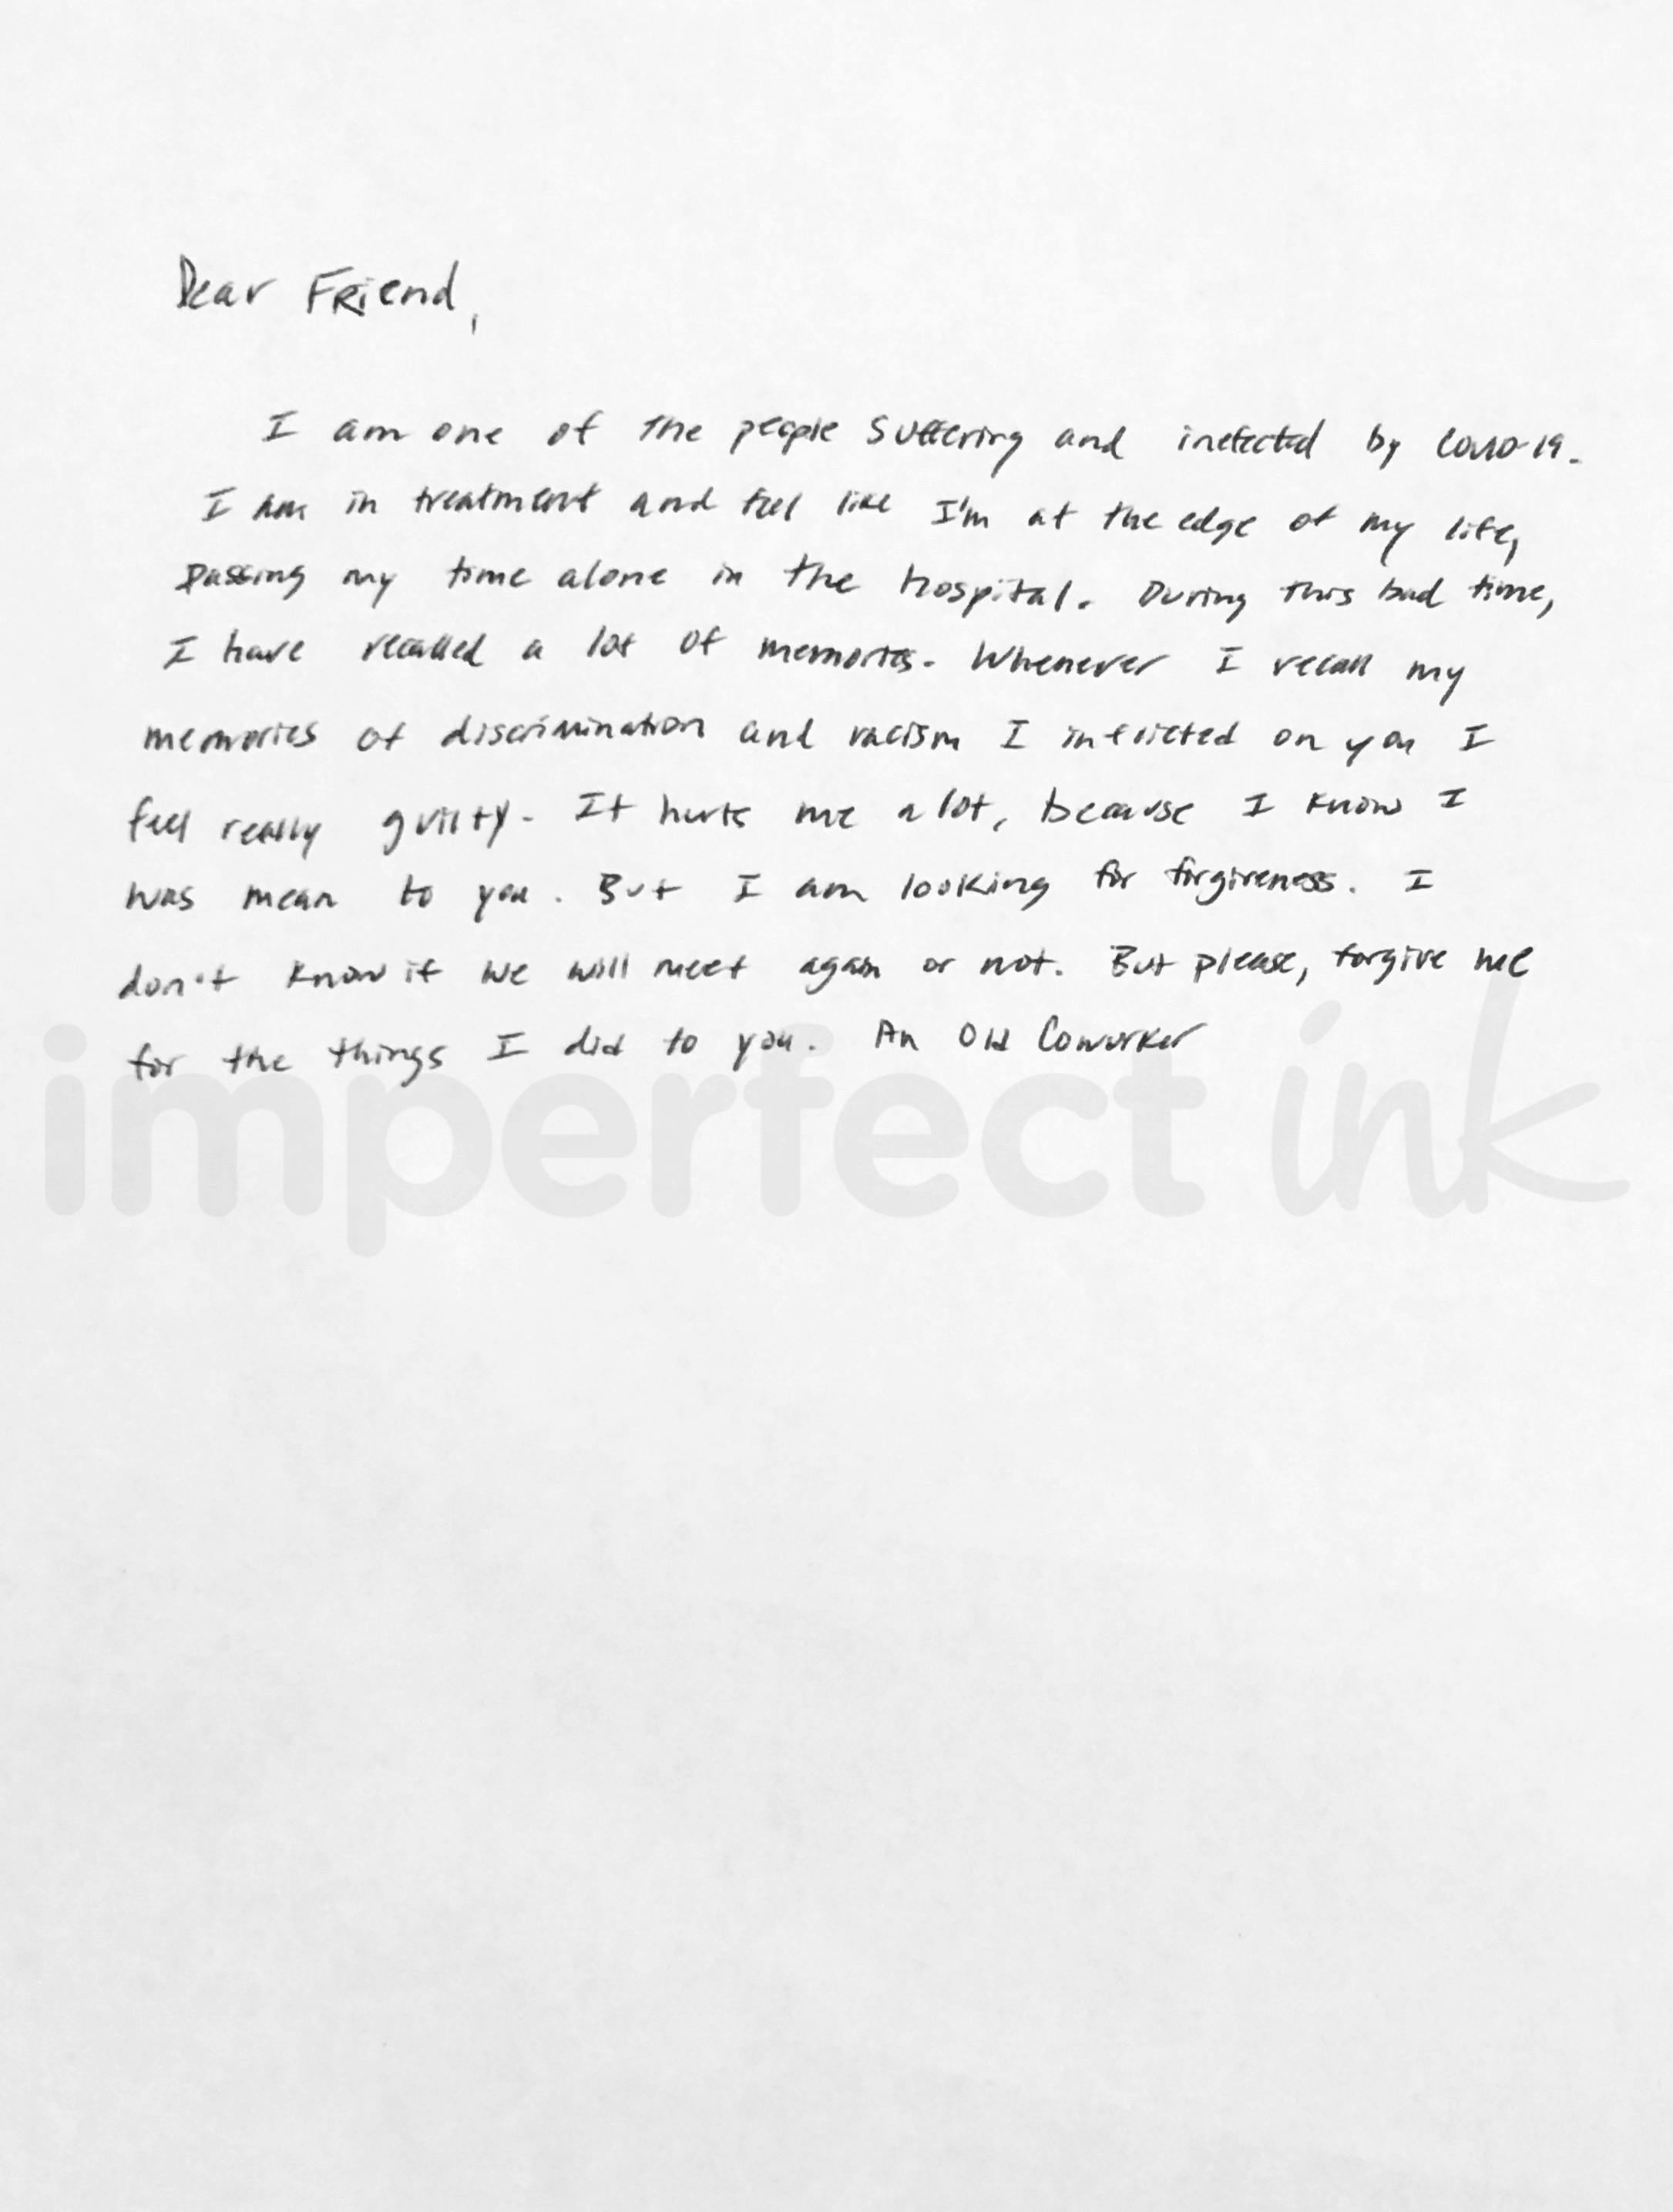 Dear Friend,
I am one of the people suffering and inefected by COVID-19.
I am in treatment and feel like I'm at the edge of my life,
passing my time alone in the hospital. During this bad time,
I have recalled a lot of memories. Whenever I recall my
memories of discrimination and racism I inflicted on you I
feel really guilty. It hurts me a lot, because I know I
was mean to you. But I am looking for forgiveness. I
don't know if we will meet again or not. But please, forgive me
for the things I did to you. An Old Coworker
imperfect ink